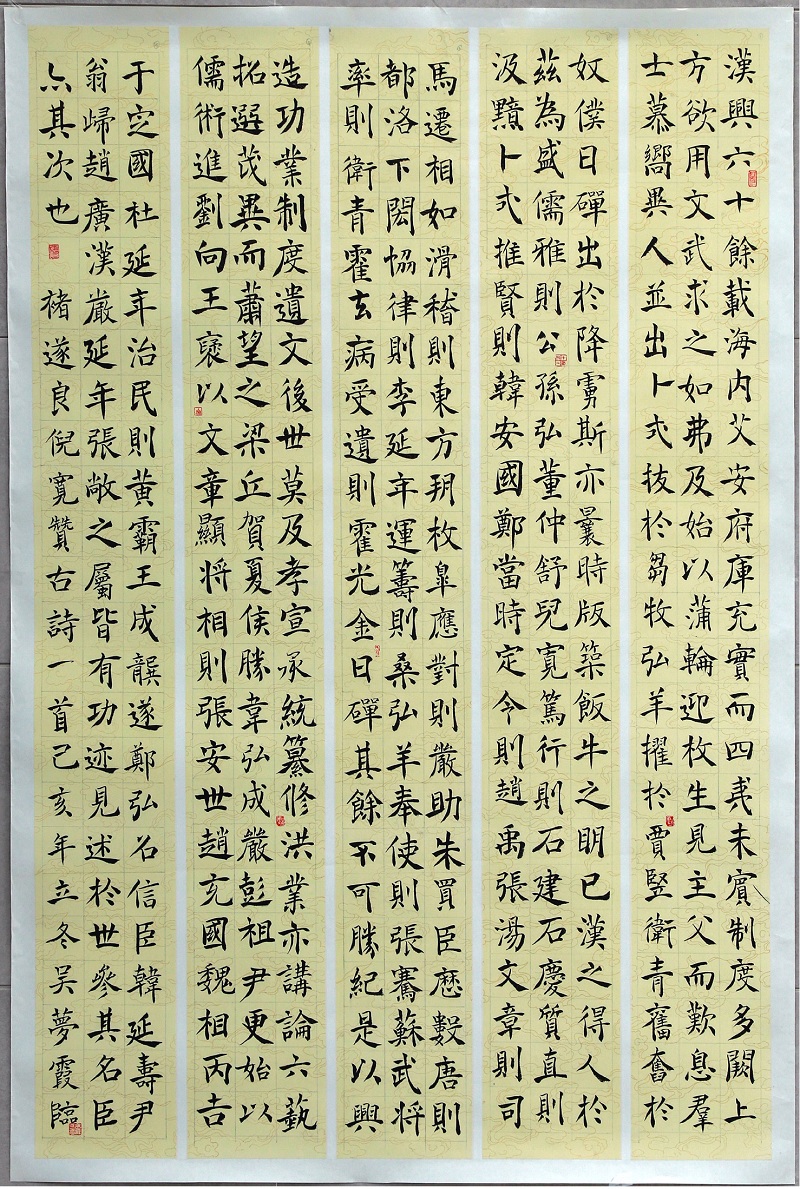 漢興六十餘載海内艾安府庫充實而四夷未賓制度多闕上
方欲用文武求之如弗及始以蒲輪迎枚生見主父而歎息羣
士慕嚮異人並出卜式拔於芻牧弘羊擢於賈豎衛青舊奮於
奴僕日磾出於降虜斯亦曩時版築飯牛之明已漢之得人於
茲為盛儒雅則公孫弘董仲舒兒寬篤行則石建石慶質直則
汲黯卜式推賢則韓安國鄭當時定令則趙禹張湯文章則司
馬遷相如滑稽則東方朔枚皋應對則嚴助朱買臣歷數唐則
都洛下閎恊律則李延年運籌則桑弘羊奉使則張騫蘇武將
率則衛青霍去病受遺則霍光金日磾其餘不可勝紀是以興
造功業制度遺文後世莫及孝宣承統纂修洪業亦講論六藝
招選茂異而蕭望之梁丘賀夏侯勝韋弘成嚴彭祖尹更始以
儒術進劉向王襃以文章顯將相則張安世趙充國魏相丙吉
于定國杜延年治民則黃霸王成龔遂鄭弘召信臣韓延壽尹
翁歸趙廣漢嚴延年張敞之屬皆有功迹見述於世參其名臣
亦其次也 褚遂良倪寬贊古詩一首己亥年立冬吳夢霞臨